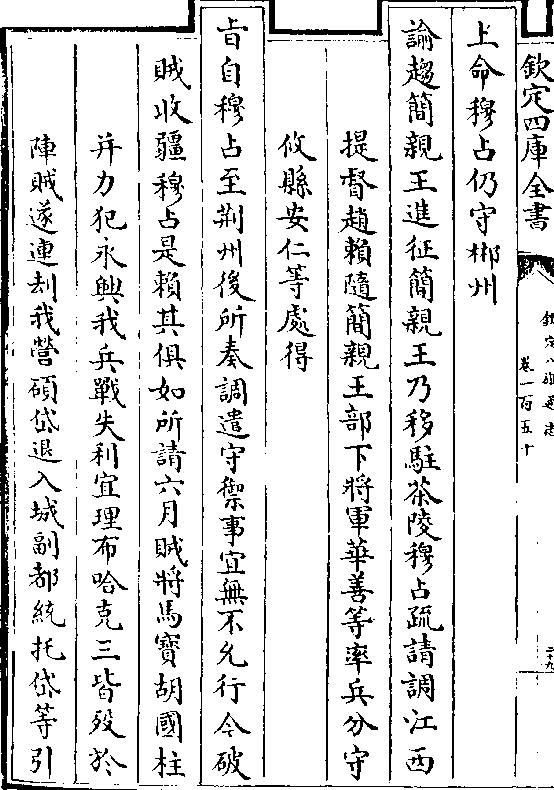 欽定四庫全書
欽定八旗通志
卷一百五十
二十九
上命穆占仍守郴州
諭趨簡親王進征簡親王乃移駐茶陵穆占疏請調江西
提督趙賴隨簡親王部下將軍華善等率兵分守
攸縣安仁等處得
旨自穆占至荆州後所奏調遣守禦事宜無不允行令破
賊收疆穆占是賴其俱如所請六月賊將馬寶胡國柱
并力犯永興我兵戰失利宜理布哈克三皆歿於
陣賊遂連刦我營碩岱退入城副都統托岱等引